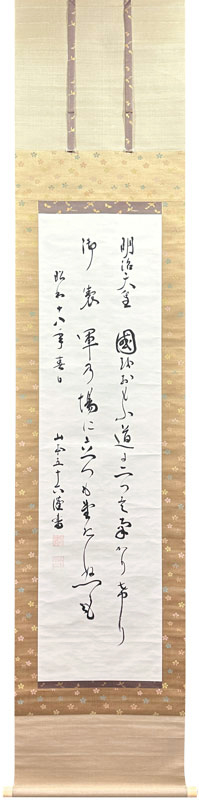 明治天皇 國をおもふ道に二つはなかりけり
御製 軍の場に立つもたゝぬも
昭和十八年春日
山本五十六謹書